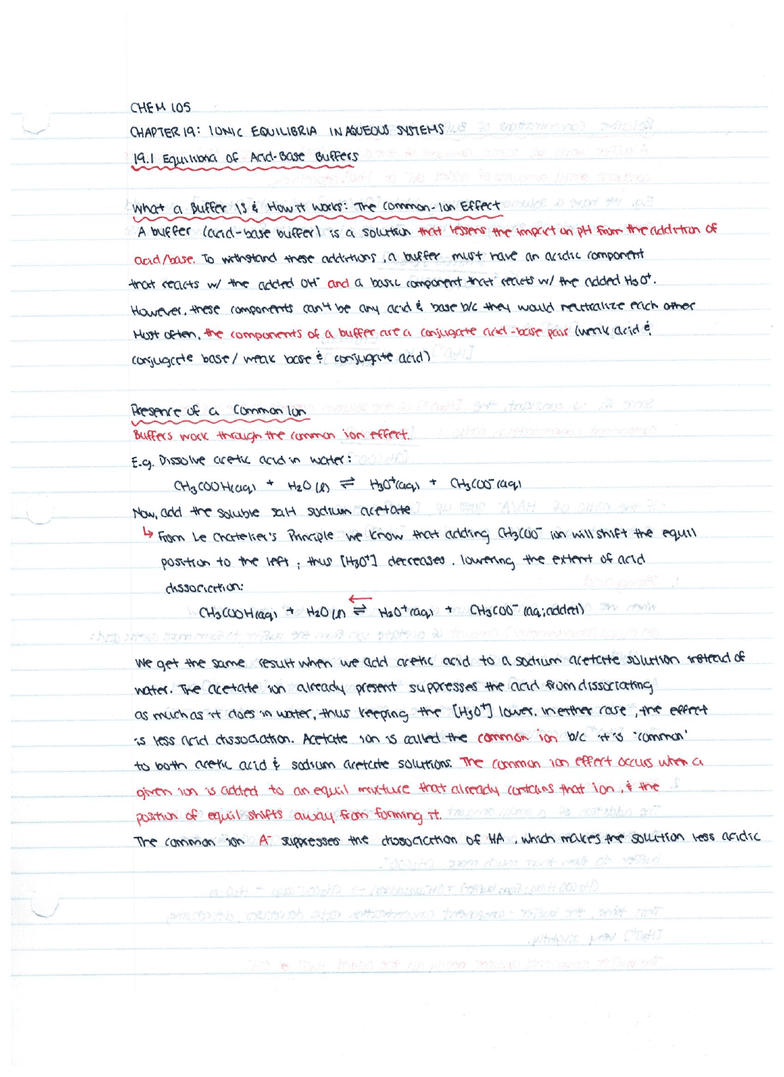 CHEM 105
CHAPTER 19: IONIC EQUILIBRIA IN AQUEOUS SYSTEMS
19.1 Equilibria of Acid-Base Buffers
What a Buffer Is & How it Works: The Common-Ion Effect
A buffer (acid-base buffer) is a solution that lessens the impact on pH from the addition of
acid/base. To withstand these additions, a buffer must have an acidic component
that reacts w/ the added OH⁻ and a basic component that reacts w/ the added H₃O⁺.
However, these components can't be any acid & base b/c they would neutralize each other
Most often, the components of a buffer are a conjugate acid-base pair (weak acid &
conjugate base / weak base & conjugate acid)
Presence of a Common Ion
Buffers work through the common ion effect.
E.g. Dissolve acetic acid in water:
CH₃COOH(aq) + H₂O(l) ⇌ H₃O⁺(aq) + CH₃COO⁻(aq)
Now, add the soluble salt sodium acetate
↳ From Le Chatelier's Principle we know that adding CH₃COO⁻ ion will shift the equil
position to the left; thus [H₃O⁺] decreases, lowering the extent of acid
dissociation:
←
CH₃COOH(aq) + H₂O(l) ⇌ H₃O⁺(aq) + CH₃COO⁻(aq; added)
We get the same result when we add acetic acid to a sodium acetate solution instead of
water. The acetate ion already present suppresses the acid from dissociating
as much as it does in water, thus keeping the [H₃O⁺] lower. In either case, the effect
is less acid dissociation. Acetate ion is called the common ion b/c it is 'common'
to both acetic acid & sodium acetate solutions. The common ion effect occurs when a
given ion is added to an equil mixture that already contains that ion, & the
position of equil shifts away from forming it.
The common ion A⁻ suppresses the dissociation of HA, which makes the solution less acidic